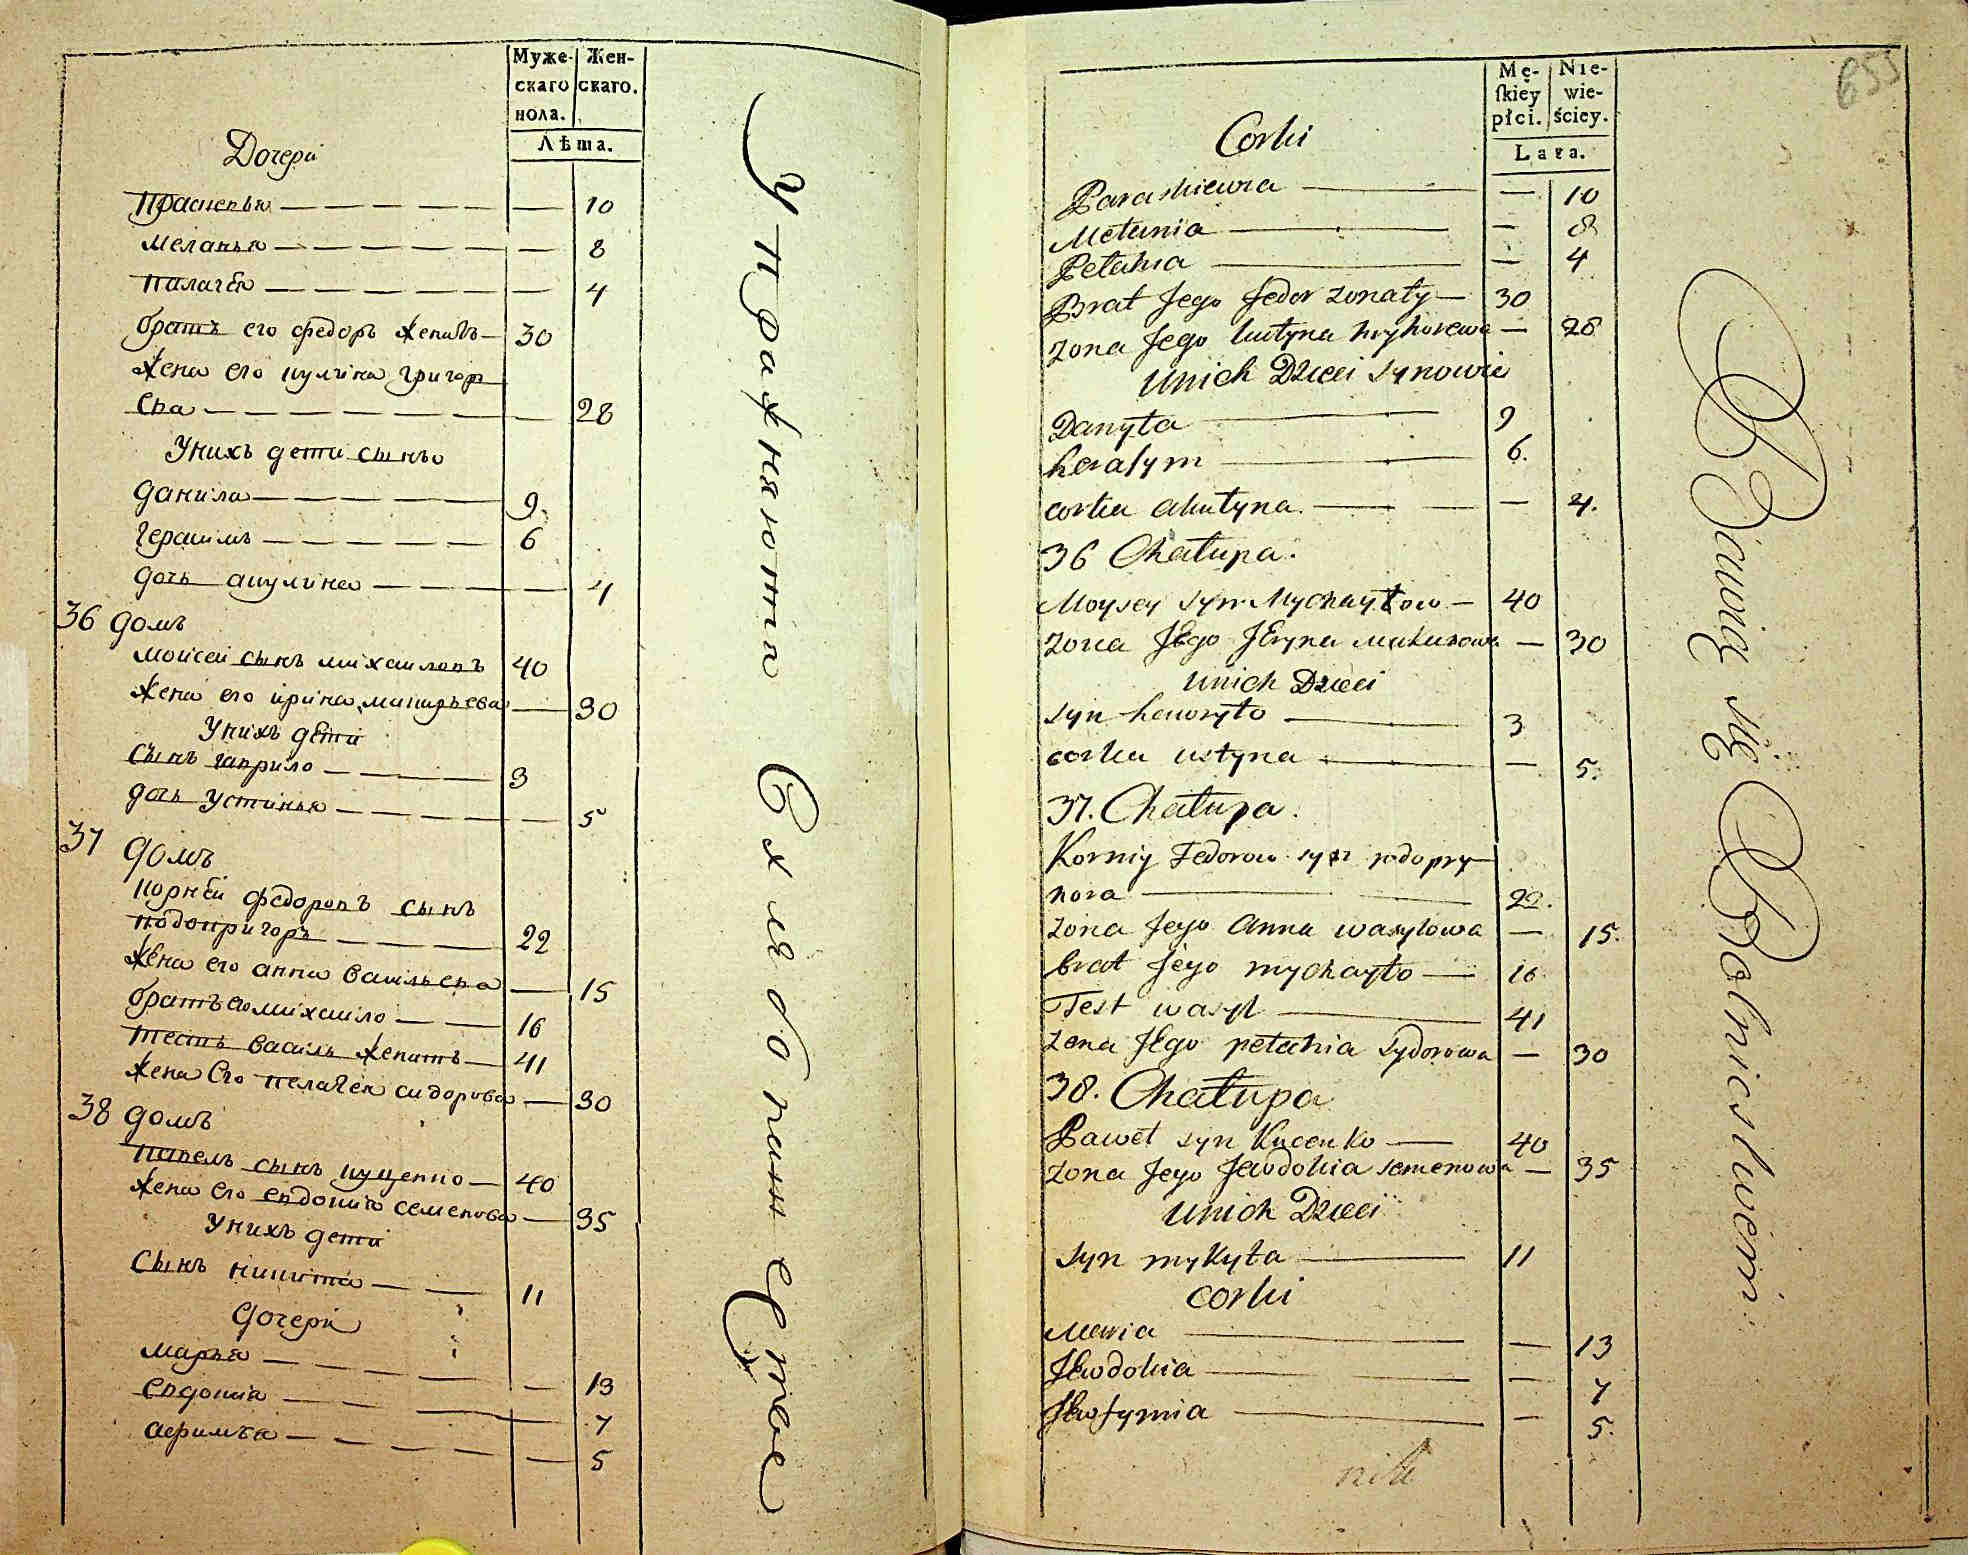 Муже-
скаго
пола.
Жен-
скаго.
Лѣта.
Дочери
Прасковья 10
Меланья 8
Палагея 4
братъ его федоръ женатъ 30
жена его кулина григор
ева 28
У нихъ дети сыны
данила 9
герасимъ 6
дочь акулина 4
36 домъ
Моисей сынъ михаиловъ 40
жена его ирина макарьева 30
У нихъ дети
сынъ гаврило 3
дочь устинья 5
37 домъ
корней федоровъ сынъ
подопригоръ 22
жена его анна васильева 15
братъ его михаило 16
тесть василь женатъ 41
жена его пелагея сидорова 30
38 домъ
павелъ сынъ куценко 40
жена его евдокия семенова 35
У нихъ дети
сынъ никита 11
дочери
марья 13
евдокия 7
афимья 5
Упражняются
в хлебопашестве
655
Mę-
skiey
płci.
Nie-
wie-
ściey.
Lata.
Corki
Paraskiewia 10
Melania 8
Pelahia 4
Brat Jego fedor zonaty 30
zona Jego kulyna hryhorewa 28
Unich Dzieci synowie
Danyło 9
herasym 6.
corka akulyna 4.
36 Chałupa.
Moysey syn Mychayłow 40
zona Jego Jryna makarowa 30
Unich Dzieci
syn hawryło 3
corka ustyna 5.
37. Chałupa.
Korniy Fedorow syn podopry-
hora 22.
zona Jego Anna wasylowa 15.
brat Jego mychayło 16
Test wasyl 41
zona Jego pelahia sydorowa 30
38. Chałupa
Paweł syn Kucenko 40
zona Jego Jewdokia semenowa 35
Unich Dzieci
syn mykyta 11
corki
Maria 13
Jewdokia 7
Jewfymia 5.
Bawią się Rolnictwem